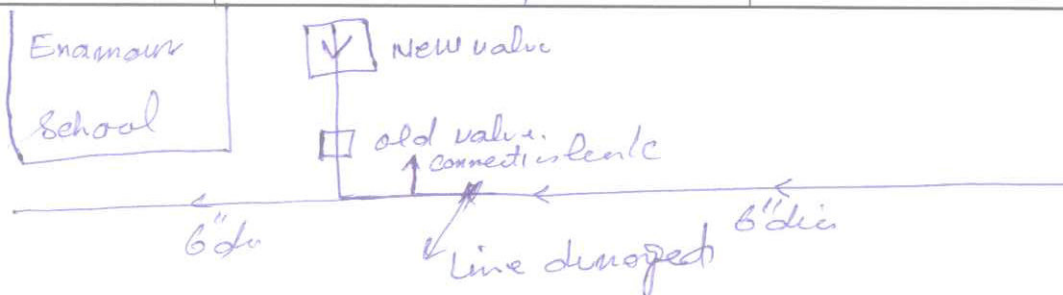 Enamour
School
New valve
old valve.
connection leak
6" dia
6" dia
Line damaged